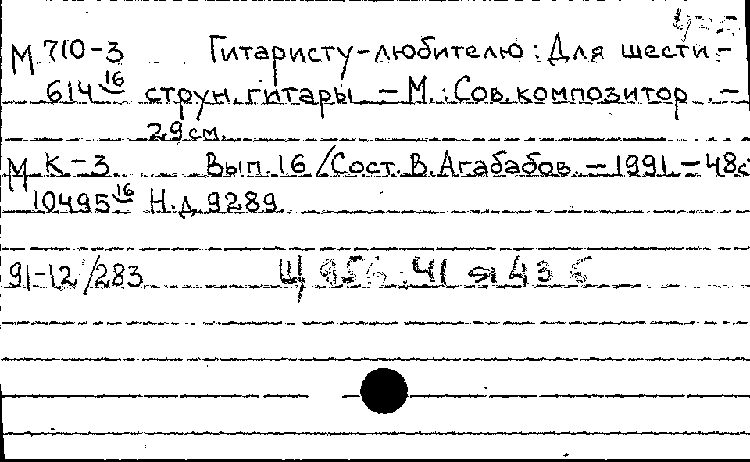 М 710-3 Гитаристу-любителю: Для шести-
614 16 струн. гитары. - М.: Сов. композитор. -
29 см.
М К-3 Вып. 16 / Сост. В. Агабабов. - 1991. - 48с
10495 16 Н.д. 9289
91-12/283 Щ 956.41 я 43 6